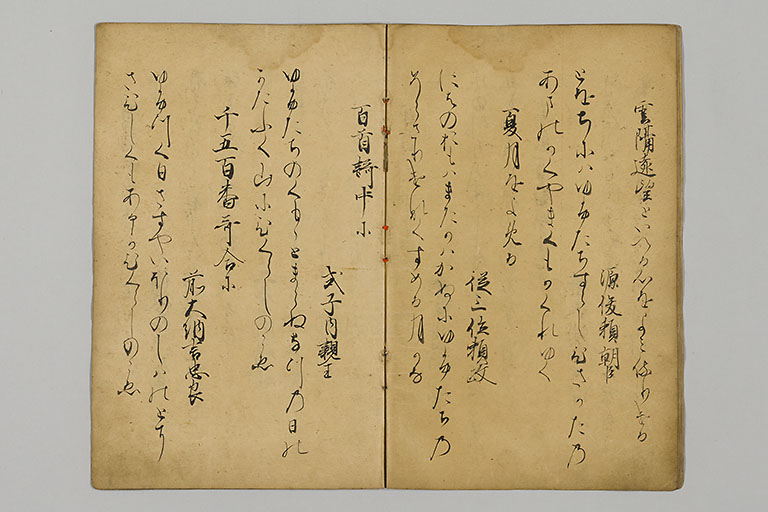 雲隔遠望といへる心をよみ侍りける
源俊頼朝臣
とをちにはゆふたちすらしひさかたの
あまのかくやまくもかくれゆく
夏月をよめる
従三位頼政
にはのおもはまたかはかぬにゆふたちの
そらさりけなくすめる月かな
百首歌中に
式子内親王
ゆふたちのくもゝとまらぬなつの日の
かたふく山にひくらしのこゑ
千五百番哥合に
前大納言忠良
ゆふつくひさすやいほりのしはのとに
さひしくもあるかひくらしのこゑ